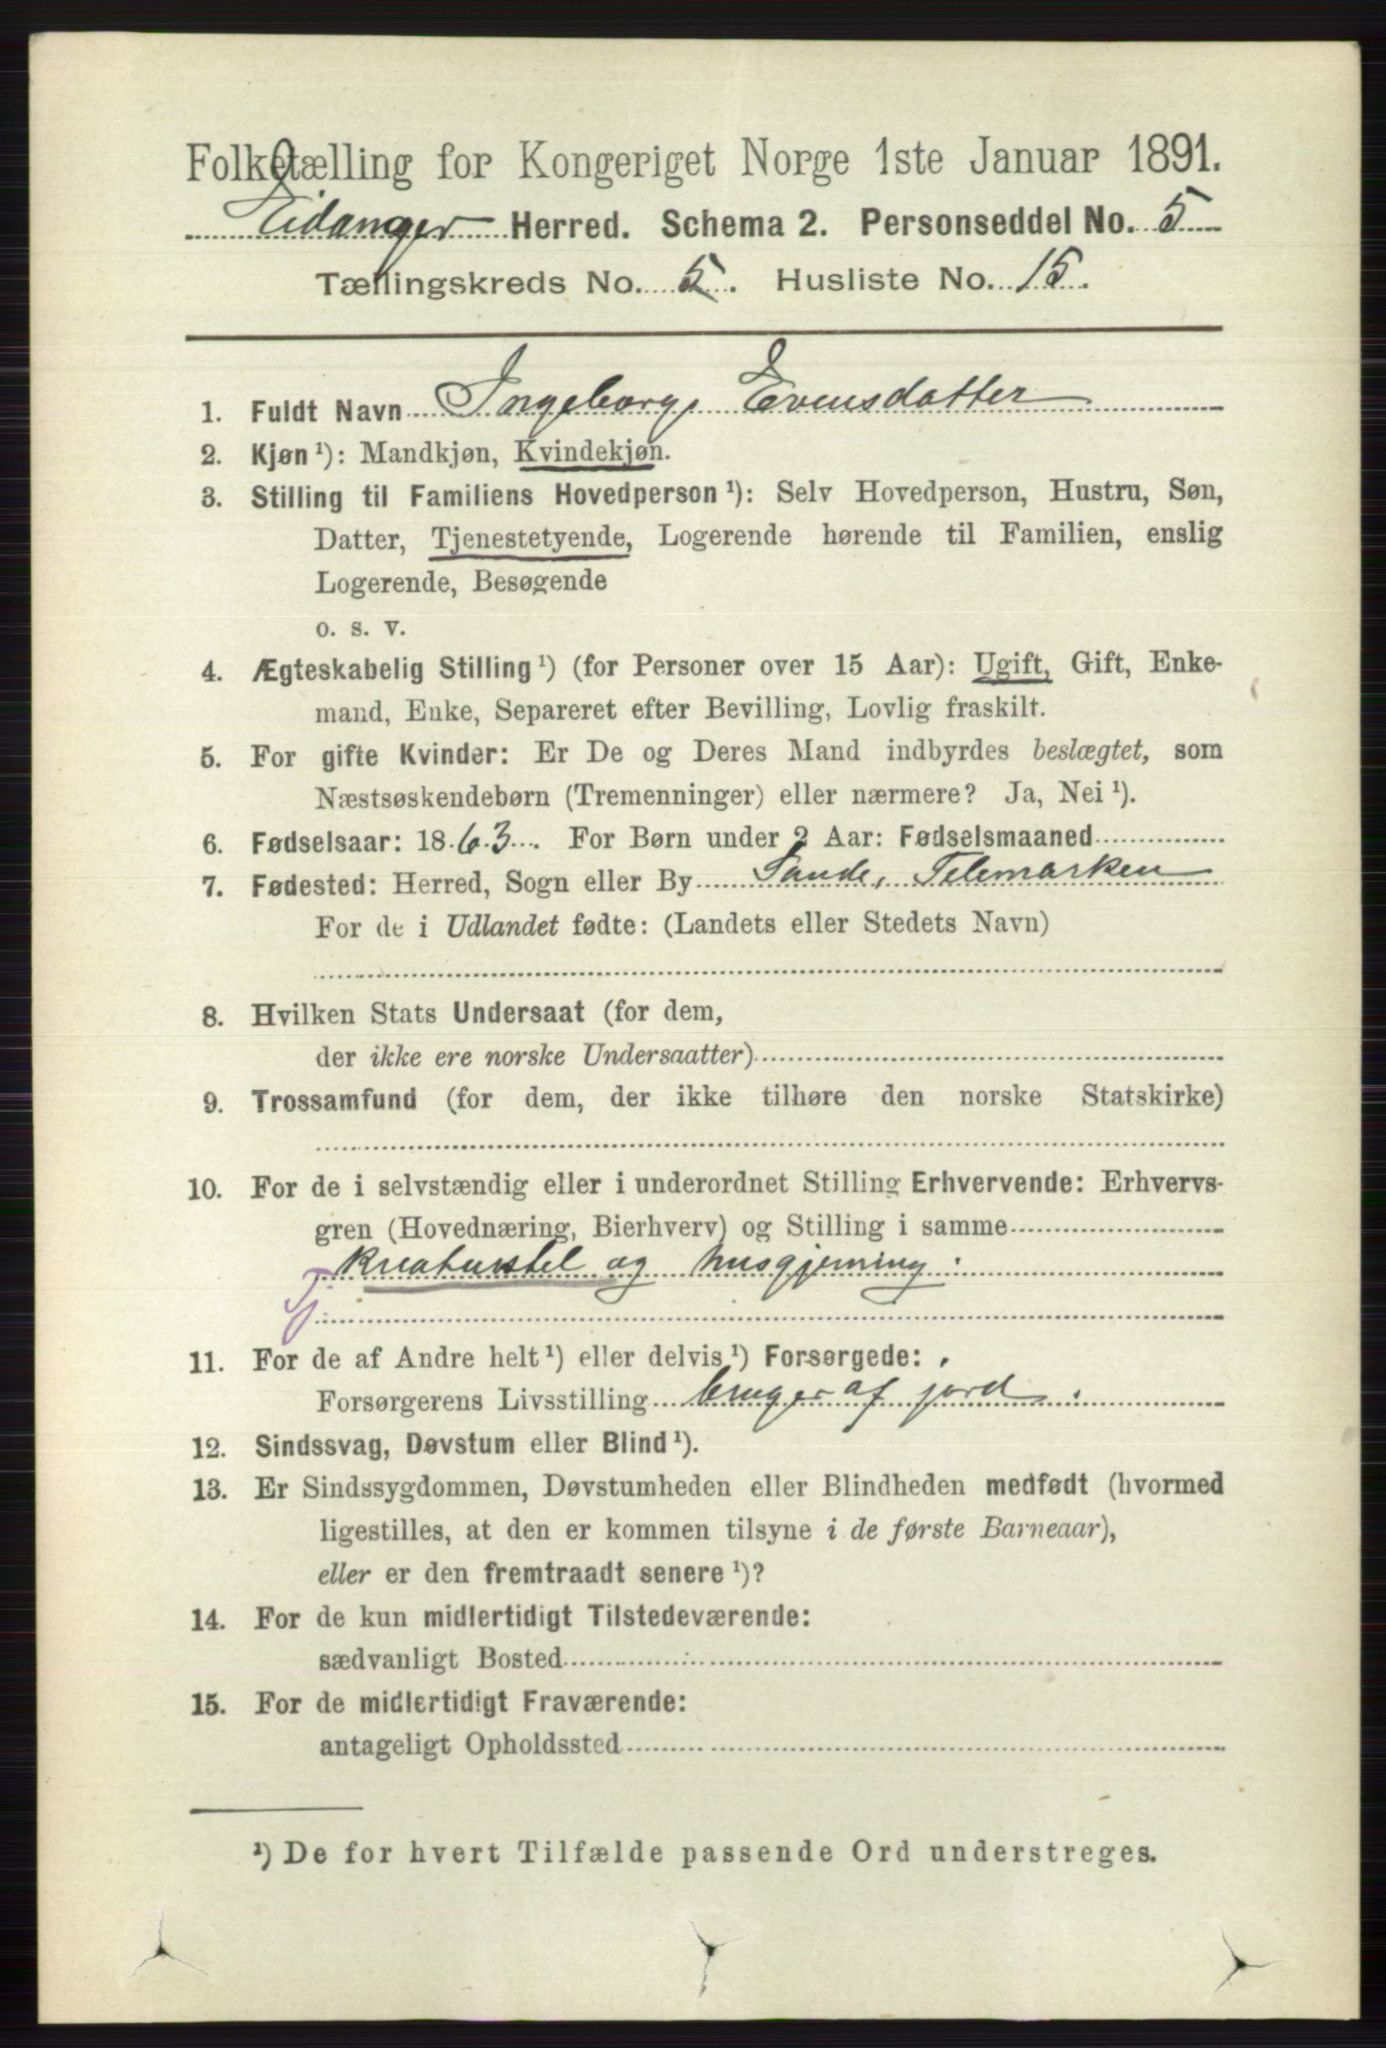 Folketælling for Kongeriget Norge 1ste Januar 1891.
Eidanger Herred. Schema 2. Personseddel No. 5
Tællingskreds No. 5. Husliste No. 15.
1. Fuldt Navn Ingeborg Evensdatter
2. Kjøn ¹): Mandkjøn, Kvindekjøn.
3. Stilling til Familiens Hovedperson ¹): Selv Hovedperson, Hustru, Søn,
Datter, Tjenestetyende, Logerende hørende til Familien, enslig
Logerende, Besøgende
o. s. v.
4. Ægteskabelig Stilling ¹) (for Personer over 15 Aar): Ugift, Gift, Enke-
mand, Enke, Separeret efter Bevilling, Lovlig fraskilt.
5. For gifte Kvinder: Er De og Deres Mand indbyrdes beslægtet, som
Næstsøskendebørn (Tremenninger) eller nærmere? Ja, Nei ¹).
6. Fødselsaar: 1863. For Børn under 2 Aar: Fødselsmaaned
7. Fødested: Herred, Sogn eller By Sande, Telemarken
For de i Udlandet fødte: (Landets eller Stedets Navn)
8. Hvilken Stats Undersaat (for dem,
der ikke ere norske Undersaatter)
9. Trossamfund (for dem, der ikke tilhøre den norske Statskirke)
10. For de i selvstændig eller i underordnet Stilling Erhvervende: Erhvervs-
gren (Hovednæring, Bierhverv) og Stilling i samme
kreaturstel og husgjerning.
Tj.
11. For de af Andre helt ¹) eller delvis ¹) Forsørgede:
Forsørgerens Livsstilling bruger af jord.
12. Sindssvag, Døvstum eller Blind ¹).
13. Er Sindssygdommen, Døvstumheden eller Blindheden medfødt (hvormed
ligestilles, at den er kommen tilsyne i de første Barneaar),
eller er den fremtraadt senere ¹)?
14. For de kun midlertidigt Tilstedeværende:
sædvanligt Bosted
15. For de midlertidigt Fraværende:
antageligt Opholdssted
¹) De for hvert Tilfælde passende Ord understreges.